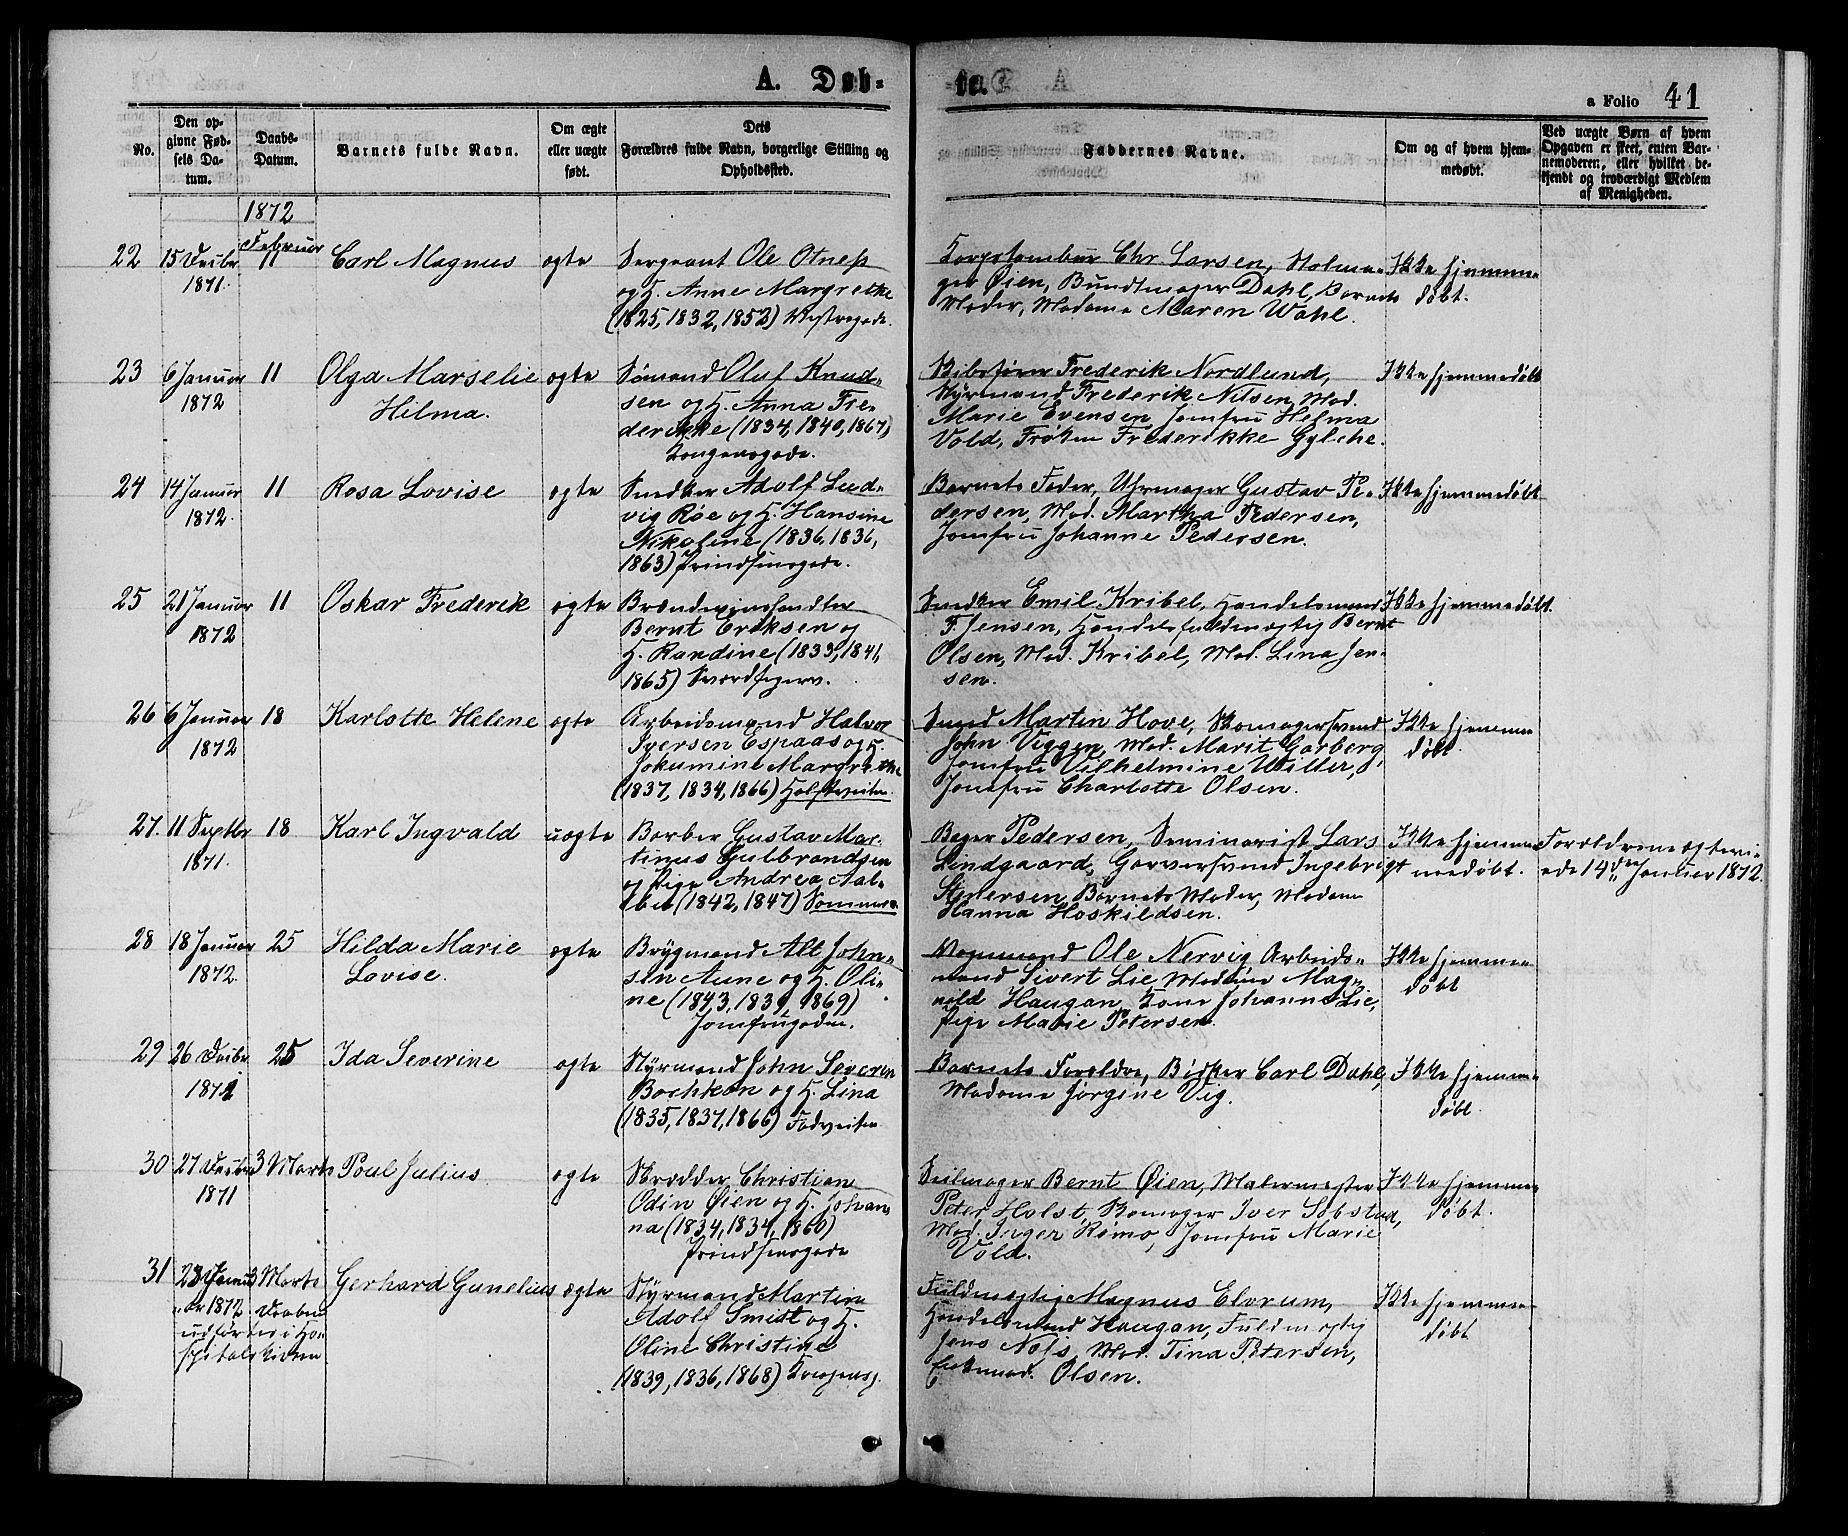 A. Døb-
te.
a Folio 41
No.
Den op-
givne Fød-
sels Da-
tum.
Daabs-
Datum.
Barnets fulde Navn.
Om ægte
eller uægte
født.
Dets
Forældres fulde Navn, borgerlige Stilling og
Opholdssted.
Faddernes Navne.
Om og af hvem hjem-
medøbt.
Ved uægte Børn af hvem
Opgaven er skeet, enten Bar-
nemoderen, eller hvilket be-
kjendt og troværdigt Medlem
af Menigheden.
1872
Februar
22
15 Decbr
1871.
11
Carl Magnus
ægte
Sergeant Ole Otness
og H. Anne Margrethe
(1825, 1832, 1852)
Chr. Larsen, Stolma-
ger Øien, Bundtmager Dahl, Barnets
Moder, Madame Maren Wahl.
Ikke hjemme-
døbt.
23
6 Januar
1872
11
Olga Marselie
Hilma.
ægte
Sømand Oluf Knud-
sen og H. Anna Fre-
derikke (1834, 1840, 1867)
Kongensgade.
Frederik Nordlund,
Styrmand Frederik Nilsen, Mad.
Marie Evensen, Jomfru Helma
Vold, Frøken Frederikke Gylche.
Ikke hjemmedøbt
24
14 Januar
1872.
11
Rosa Lovise
ægte
Snedker Adolf Lud-
vig Røe og H. Hansine
Nikoline (1836, 1836,
1863) Prindsensgade.
Barnets Fader, Uhrmager Gustav Pe-
dersen, Mad. Martha Pedersen,
Jomfru Johanne Pedersen.
Ikke hjemmedøbt
25
21 Januar
1872
11
Oskar Frederik
ægte
Brændevinshandler
Bernt Eriksen og
H. Randine (1833, 1841,
1865)
Snedker Emil Kribel, Handelsmand
F. Jensen, Handelsfuldmægtig Bernt
Olsen, Mad. Kribel, Mad. Lina Jen-
sen.
Ikke hjemmedøbt.
26
6 Januar
1872
18
Karlotte Helene
ægte
Arbeidsmand Halvor
Iversen Espaas og H.
Jokumine Margrethe
(1837, 1834, 1866)
Smed Martin Hove, Skomagersvend
John Viggen, Mad. Marit Garberg,
Jomfru Vilhelmine Willer,
Jomfru Charlotte Olsen.
Ikke hjemme-
døbt.
27.
11 Septbr
1871.
18
Karl Ingvald
uægte
Barber Gustav Mar-
tinus Gulbrandsen
og Pige Andrea Aal-
(1842, 1847)
Bager Pedersen, Seminarist Lars
Lendgaard, Garversvend Ingebrigt
Barnets Moder, Madam
Hanna Hoskildsen.
Ikke hjemme-
medøbt.
Forældrene ægtevi-
ede 14de Januar 1872.
28
18 Januar
1872.
25
Hilda Marie
Lovise.
ægte
Brygmand Alt John-
sen Aune og H. Oli-
ne (1843, 1839, 1869)
Jomfrugaden.
Vognmand Ole Nervig, Arbeids-
mand Sivert Lie, Madame Mag-
nild Haugan, Kone Johanne Lie,
Pige Marie Petersen.
Ikke hjemme-
døbt
29
26 Decbr
1871
25
Ida Severine
ægte
Styrmand John Severin
og H. Lina
(1835, 1837, 1866) Fadveiten
Barnets Forældre, Bødker Carl Dahl,
Madame Jørgine Vig.
Ikke hjemme-
døbt.
30
27 Decbr
1871
3 Marts
Poul Julius
ægte
Skrædder Christian
Odin Øien og H. Johan-
na (1834, 1834, 1860)
Prindsensgade
Seilmager Bernt Øien, Malermester
Peter Holst, Iver Sobstad,
Mad. Inger Rømo, Jomfru Marie
Vold.
Ikke hjemme-
døbt.
31
23 Janu-
ar 1872
3 Marts
Daaben
udført i Ho-
spitalskirken
Gerhard Gunelius
ægte
Styrmand Martin
Adolf Smidt og H.
Oline Christine
(1839, 1836, 1868) Kongensg.
Fuldmægtig Magnus Elvrum,
Handelsmand Haugan, Fuldmægtig
Jens Nols, Mad. Tina Petersen,
Olsen.
Ikke hjemme-
døbt